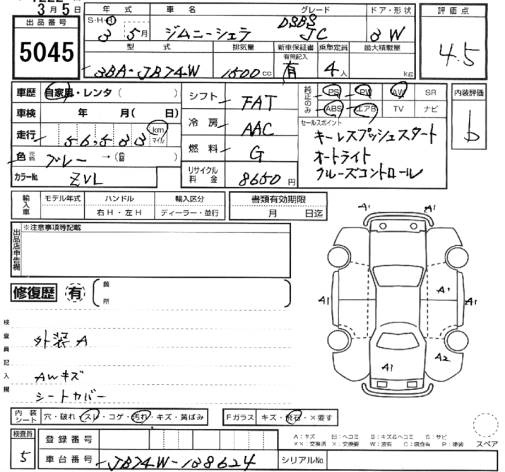 3月5日
出品番号
5045
年式 車名 グレード ドア・形状
S・H・R 3 5月 ジムニーシエラ JC 3W
型式 排気量 新車保証書 乗車定員 最大積載量
3BA-JB74W 1500cc 有 4人 kg
評価点
4.5
車歴 自家用・レンタ( )
車検 年 月( 日)
走行 km マイル
色 グレー →( )
カラーNo. ZVL
シフト FAT
冷房 AAC
燃料 G
リサイクル料金 8650円
純正のみ PS PW AW SR
ABS エアB TV ナビ
セールスポイント
キーレスプッシュスタート
オートライト
クルーズコントロール
内装評価
b
輸入車 モデル年式 ハンドル 輸入区分 書類有効期限
右H・左H ディーラー・並行 月 日迄
出品店申告欄
※注意事項等記載
修復歴 有 箇所
検査員記入欄
外装A
AWキズ
シートカバー
A1 A1
A1 A1 A1
A1 A2
内装シート 穴・破れ・スレ・コゲ・汚れ・キズ・黄ばみ Fガラス キズ・飛石・×要す
スペア
検査員 5
登録番号
車台番号 JB74W-138624 シリアルNo.